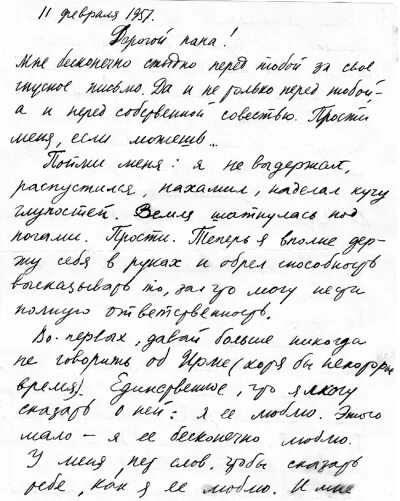 11 февраля 1957.
Дорогой папа!
Мне бесконечно стыдно перед тобой за свое
гнусное письмо. Да и не только перед тобой –
а и перед собственной совестью. Прости
меня, если можешь...
Пойми меня: я не выдержал,
распустился, нахамил, наделал кучу
глупостей. Земля шатнулась под
ногами. Прости. Теперь я вполне дер-
жу себя в руках и обрел способность
высказывать то, за что могу нести
полную ответственность.
Во-первых, давай больше никогда
не говорить об Ирме (хотя бы некоторое
время). Единственное, что я могу
сказать о ней: я ее люблю. Этого
мало – я ее бесконечно люблю.
У меня нет слов, чтобы сказать
тебе, как я ее люблю. И мне